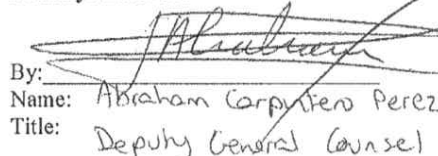 By:
Name: Abraham Carpintero Perez
Title:
Deputy General Counsel